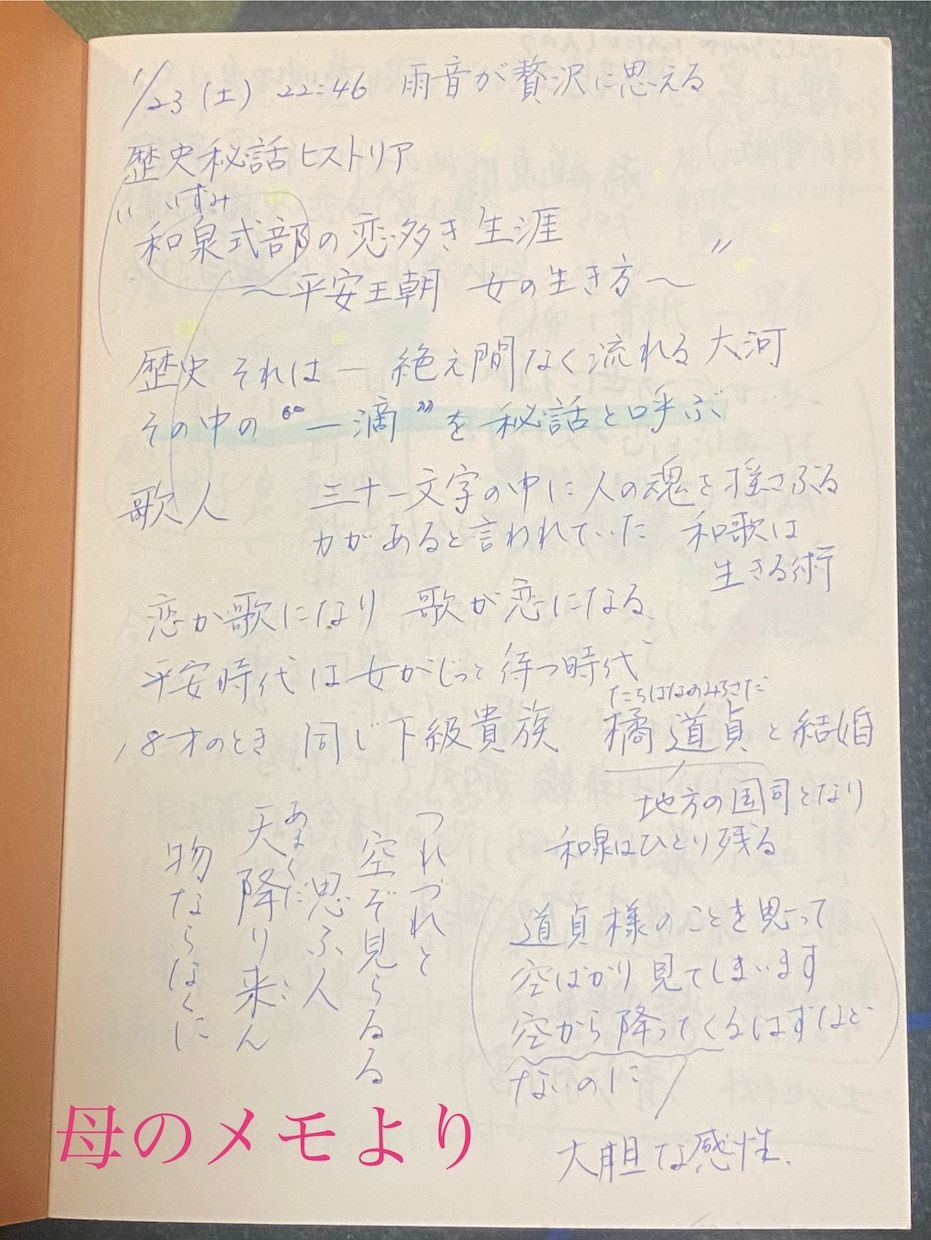 1/23(土) 22:46 雨音が贅沢に思える
歴史秘話ヒストリア
いずみ
"和泉式部の恋多き生涯
～平安王朝 女の生き方～"
歴史 それは ― 絶え間なく流れる大河
その中の"一滴"を秘話と呼ぶ
歌人 三十一文字の中に人の魂を揺さぶる
力があると言われていた 和歌は
生きる術
恋が歌になり 歌が恋になる
平安時代は女がじっと待つ時代
たちばなのみちさだ
18才のとき 同じ下級貴族 橘道貞と結婚
地方の国司となり
和泉はひとり残る
つれづれと
空ぞ見らるる
思ふ人
あまくだ
天降り来ん
物ならなくに
道貞様のことを思って
空ばかり見てしまいます
空から降ってくるはずなど
ないのに
大胆な感性.
母のメモより